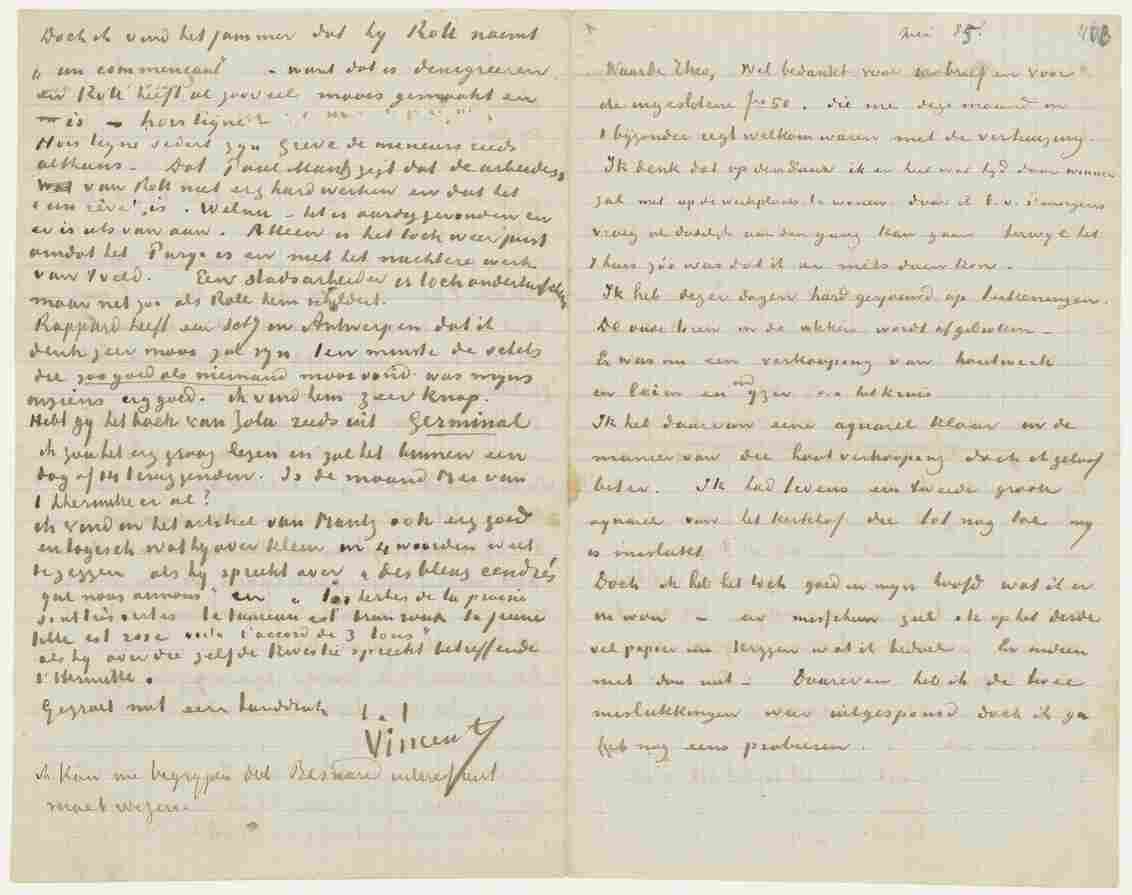 Doch ik vind het jammer dat hy Roll noemt
„un commençant" – want dat is denegreeren
en Roll heeft al zooveel moois gemaakt en
is – hors ligne
Hors ligne sedert zyn Grève de mineurs reeds
althans – Dat Paul Mantz zegt dat de arbeiders
van Roll niet erg hard werken en dat het
„un rêve" is. Welnu – het is aardig gevonden en
er is iets van aan. Alleen is het toch weer juist
omdat het Parys is en niet het nuchtere werk
van 't veld. Een stadsarbeider is toch
maar net zoo als Roll hem schildert.
Rappard heeft een in Antwerpen dat ik
denk zeer mooi zal zyn ten minste de schets
die zoo goed als niemand mooi vond was myns
inziens erg goed. ik vind hem zeer knap.
Hebt gy het boek van Zola reeds uit Germinal
ik zou het erg graag lezen en zal het binnen een
dag of 14 terugzenden. Is de maand Mei van
Lhermitte er al?
ik vind in het artikel van Mantz ook erg goed
en logisch wat hy over kleur in 4 woorden weet
te zeggen als hy spreekt over „des bleus cendrés
que nous aimons" en „les tertes de la prairie
sont très vertes le taureau est brun roux la jeune
fille est rose voilà l'accord de 3 tons"
als hy over die zelfde kwestie spreekt betreffende
l'Hermitte.
Gegroet met een handdruk t. à t.
Vincent
ik kan me begrypen dat Besnard interessant
moet wezen
mei 85
Waarde Theo, Wel bedankt voor uw brief en voor
de ingesloten frs 50. die me deze maand in
't byzonder regt welkom waren met de verhuizing.
Ik denk dat op den duur ik er hier wat tyd door winnen
zal met op de werkplaats te wonen daar ik b.v. s'morgens
vroeg al dadelyk aan den gang kan gaan terwyl het
't huis zóó was dat ik er niets doen kon.
Ik heb dezer dagen hard gezwoegd op teekeningen.
De oude toren in de akkers wordt afgebroken –
Er was nu een verkooping van houtwerk
en leien en oud yzer o.a. het kruis
Ik heb daarvan eene aquarel klaar in de
manier van die houtverkooping doch ik geloof
beter. Ik had tevens een tweede groote
aquarel van het kerkhof die tot nog toe my
is mislukt
Doch ik heb het toch goed in myn hoofd wat ik er
in wou – en misschien ziet ge op het derde
vel papier nu krygen wat ik bedoel. En indien
niet dan niet – Daareven heb ik de twee
mislukkingen weer uitgesponsd doch ik ga
het nog eens probeeren.